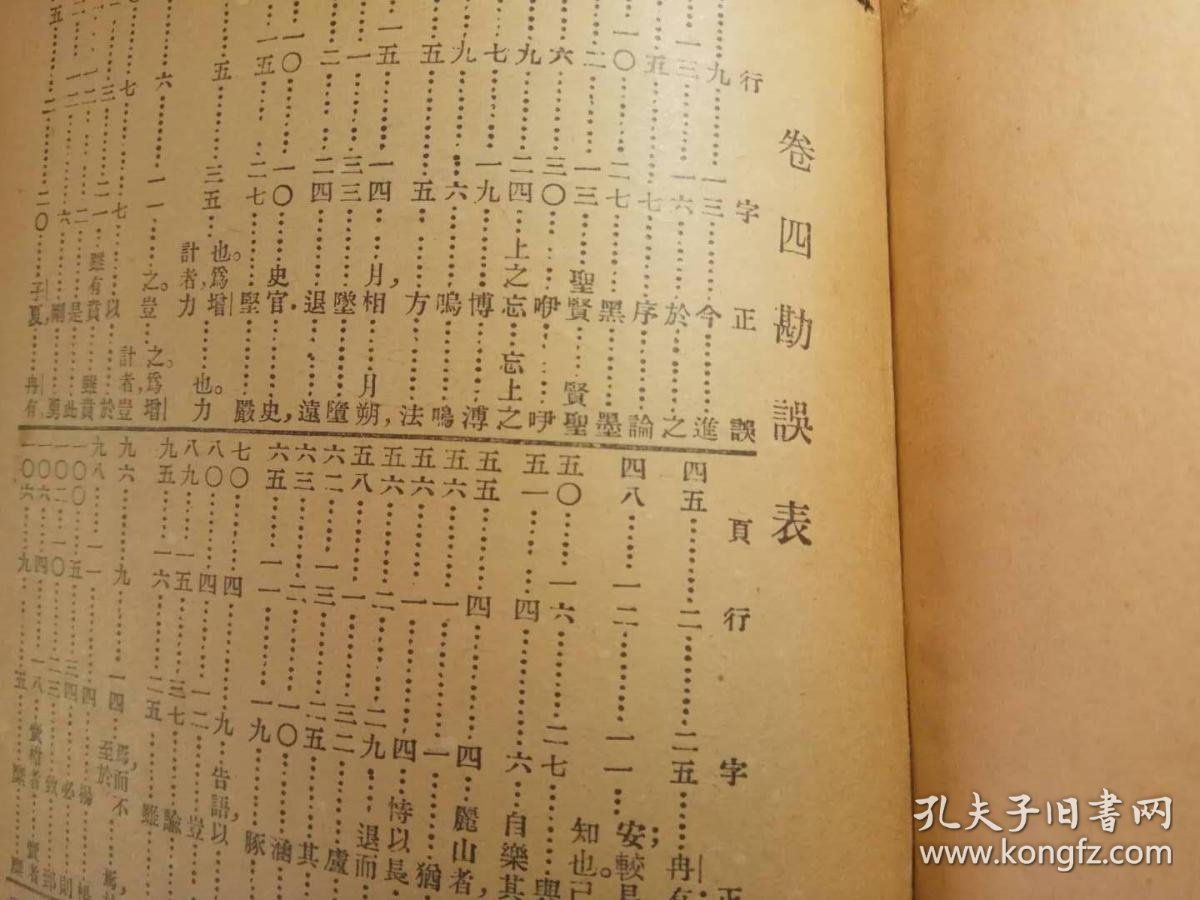 卷四勘誤表
行 字 正 誤
九 一三 今 進
一三 一六 於 之
五 七 序 論
一〇 二七 黑 墨
二 一三 聖賢 賢聖
六 三〇 咿 吚
九 二四 上之忘 忘上之
七 一九 博 溥
九 六 嗚 鳴
五 五 方 法
一五 一四 月,相 月朔,
一 三三 墜 墮
二 二四 退 遠
一〇 一〇 史官. 史,
一五 二七 堅 嚴
五 三五 也。爲增 也。力
計者,力
六 一一 之。豈 之。爲增
計者,豈
七 七 以 於
三 二一 雖有賁 雖賁
一二 二 是 此
一二 六 剛 勇
二 二〇 子夏, 冉有,
頁 行 字 正
四五 二 二五 冉有
四八 一二 一一 安;較
五〇 一六 二七 知也。己
五一 四 六 自樂其
五五 四 四 麗山者,
五六 一 一 猶
五六 一 四 恃以長
五六 二 二九 退而
五八 一 三二 盧
六二 一三 二五 其
六三 二 一〇 涵
六五 一一 一九 豚
七〇 四 九 告語,以
八〇 四 一二 豈
八九 一五 三七 諭
九五 一六 二五 雖
九六 九 一四 焉,而不
至於
孔夫子旧書网
www.kongfz.com